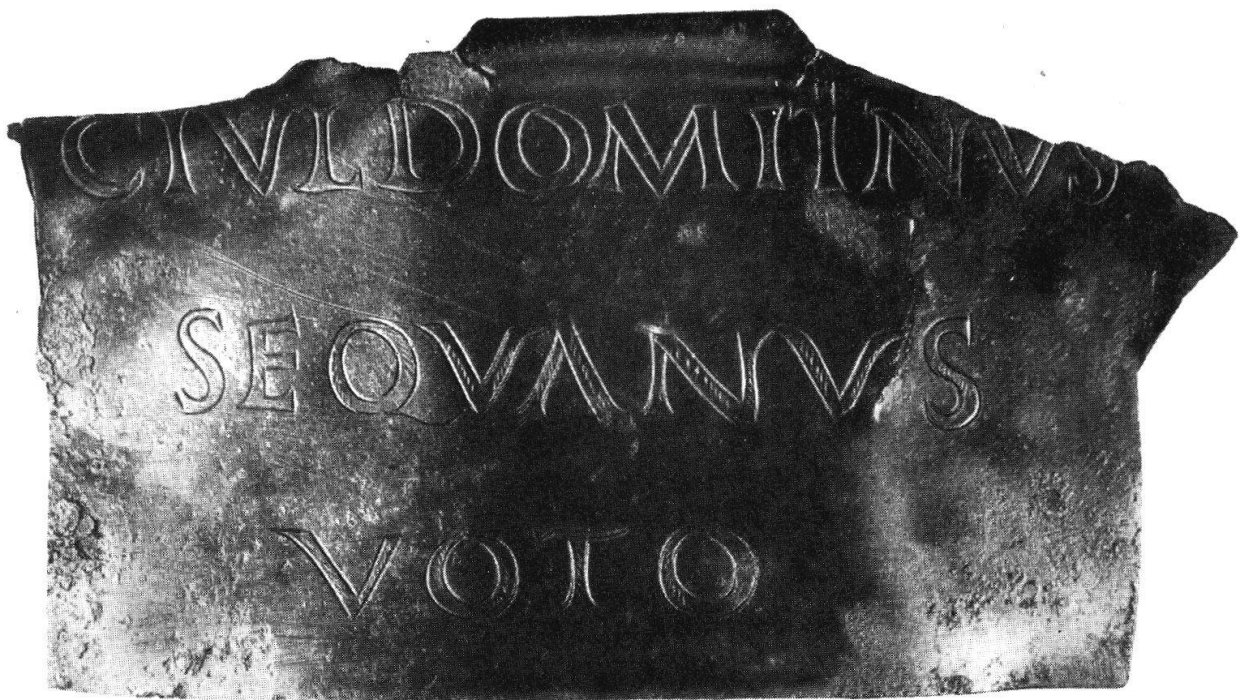 CIVLDOMITINVS
SEQVANVS
VOTO